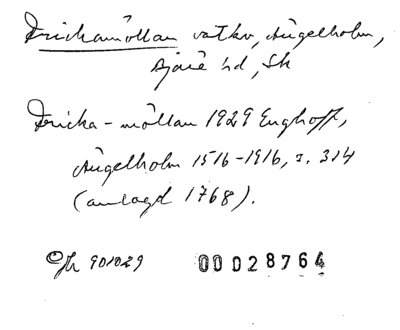 Frickamöllan vatkv, Ängelholm,
Bjäre hd, Sk
Fricka-möllan 1929 Enghoff,
Ängelholm 1516-1916, s. 314
(anlagd 1768).
901029 00028764